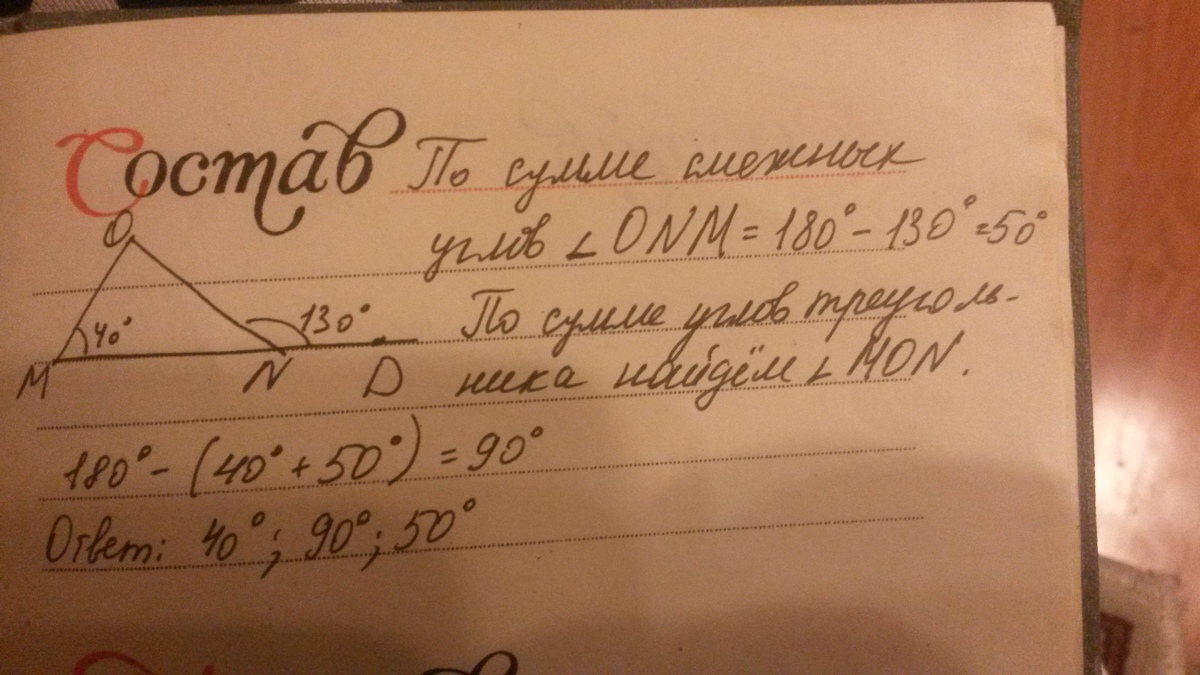 Состав По сумме смежных
углов ∠ONM = 180° - 130° = 50°
O
40°
130°
M
N
D
По сумме углов треуголь-
ника найдём ∠MON.
180° - (40° + 50°) = 90°
Ответ: 40°; 90°; 50°